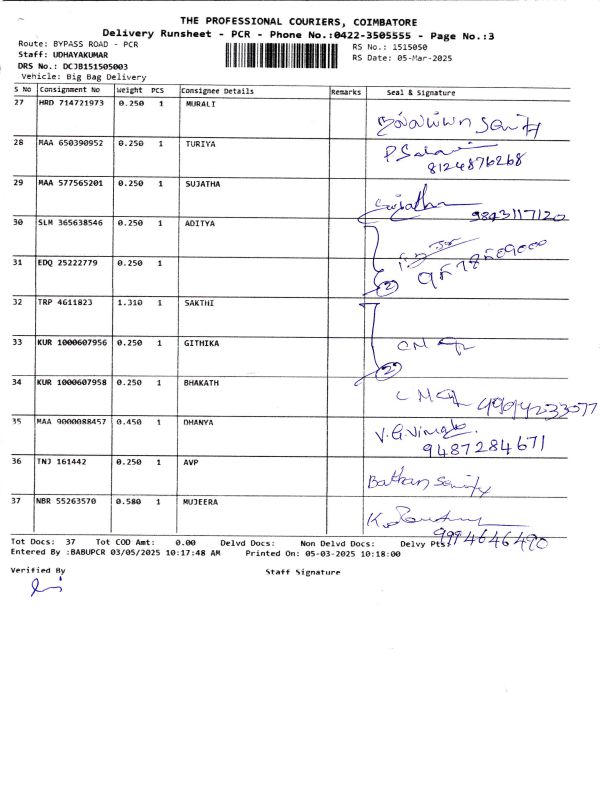 THE PROFESSIONAL COURIERS, COIMBATORE
Delivery Runsheet - PCR - Phone No.:0422-3505555 - Page No.:3
Route: BYPASS ROAD - PCR
Staff: UDHAYAKUMAR
DRS No.: DCJB151505003
Vehicle: Big Bag Delivery
RS No.: 1515050
RS Date: 05-Mar-2025
S No Consignment No Weight PCS Consignee Details Remarks Seal & Signature
27 HRD 714721973 0.250 1 MURALI
28 MAA 650390952 0.250 1 TURIYA
8124876268
29 MAA 577565201 0.250 1 SUJATHA
Sujatha 9843117120
30 SLM 365638546 0.250 1 ADITYA
31 EDQ 25222779 0.250 1
2
32 TRP 4611823 1.310 1 SAKTHI
33 KUR 1000607956 0.250 1 GITHIKA
2
34 KUR 1000607958 0.250 1 BHAKATH
35 MAA 9000088457 0.450 1 DHANYA
9487284671
36 TNJ 161442 0.250 1 AVP
37 NBR 55263570 0.580 1 MUJEERA
Tot Docs: 37 Tot COD Amt: 0.00 Delvd Docs: Non Delvd Docs: Delvy Pts:
9994646490
Entered By :BABUPCR 03/05/2025 10:17:48 AM Printed On: 05-03-2025 10:18:00
Verified By Staff Signature